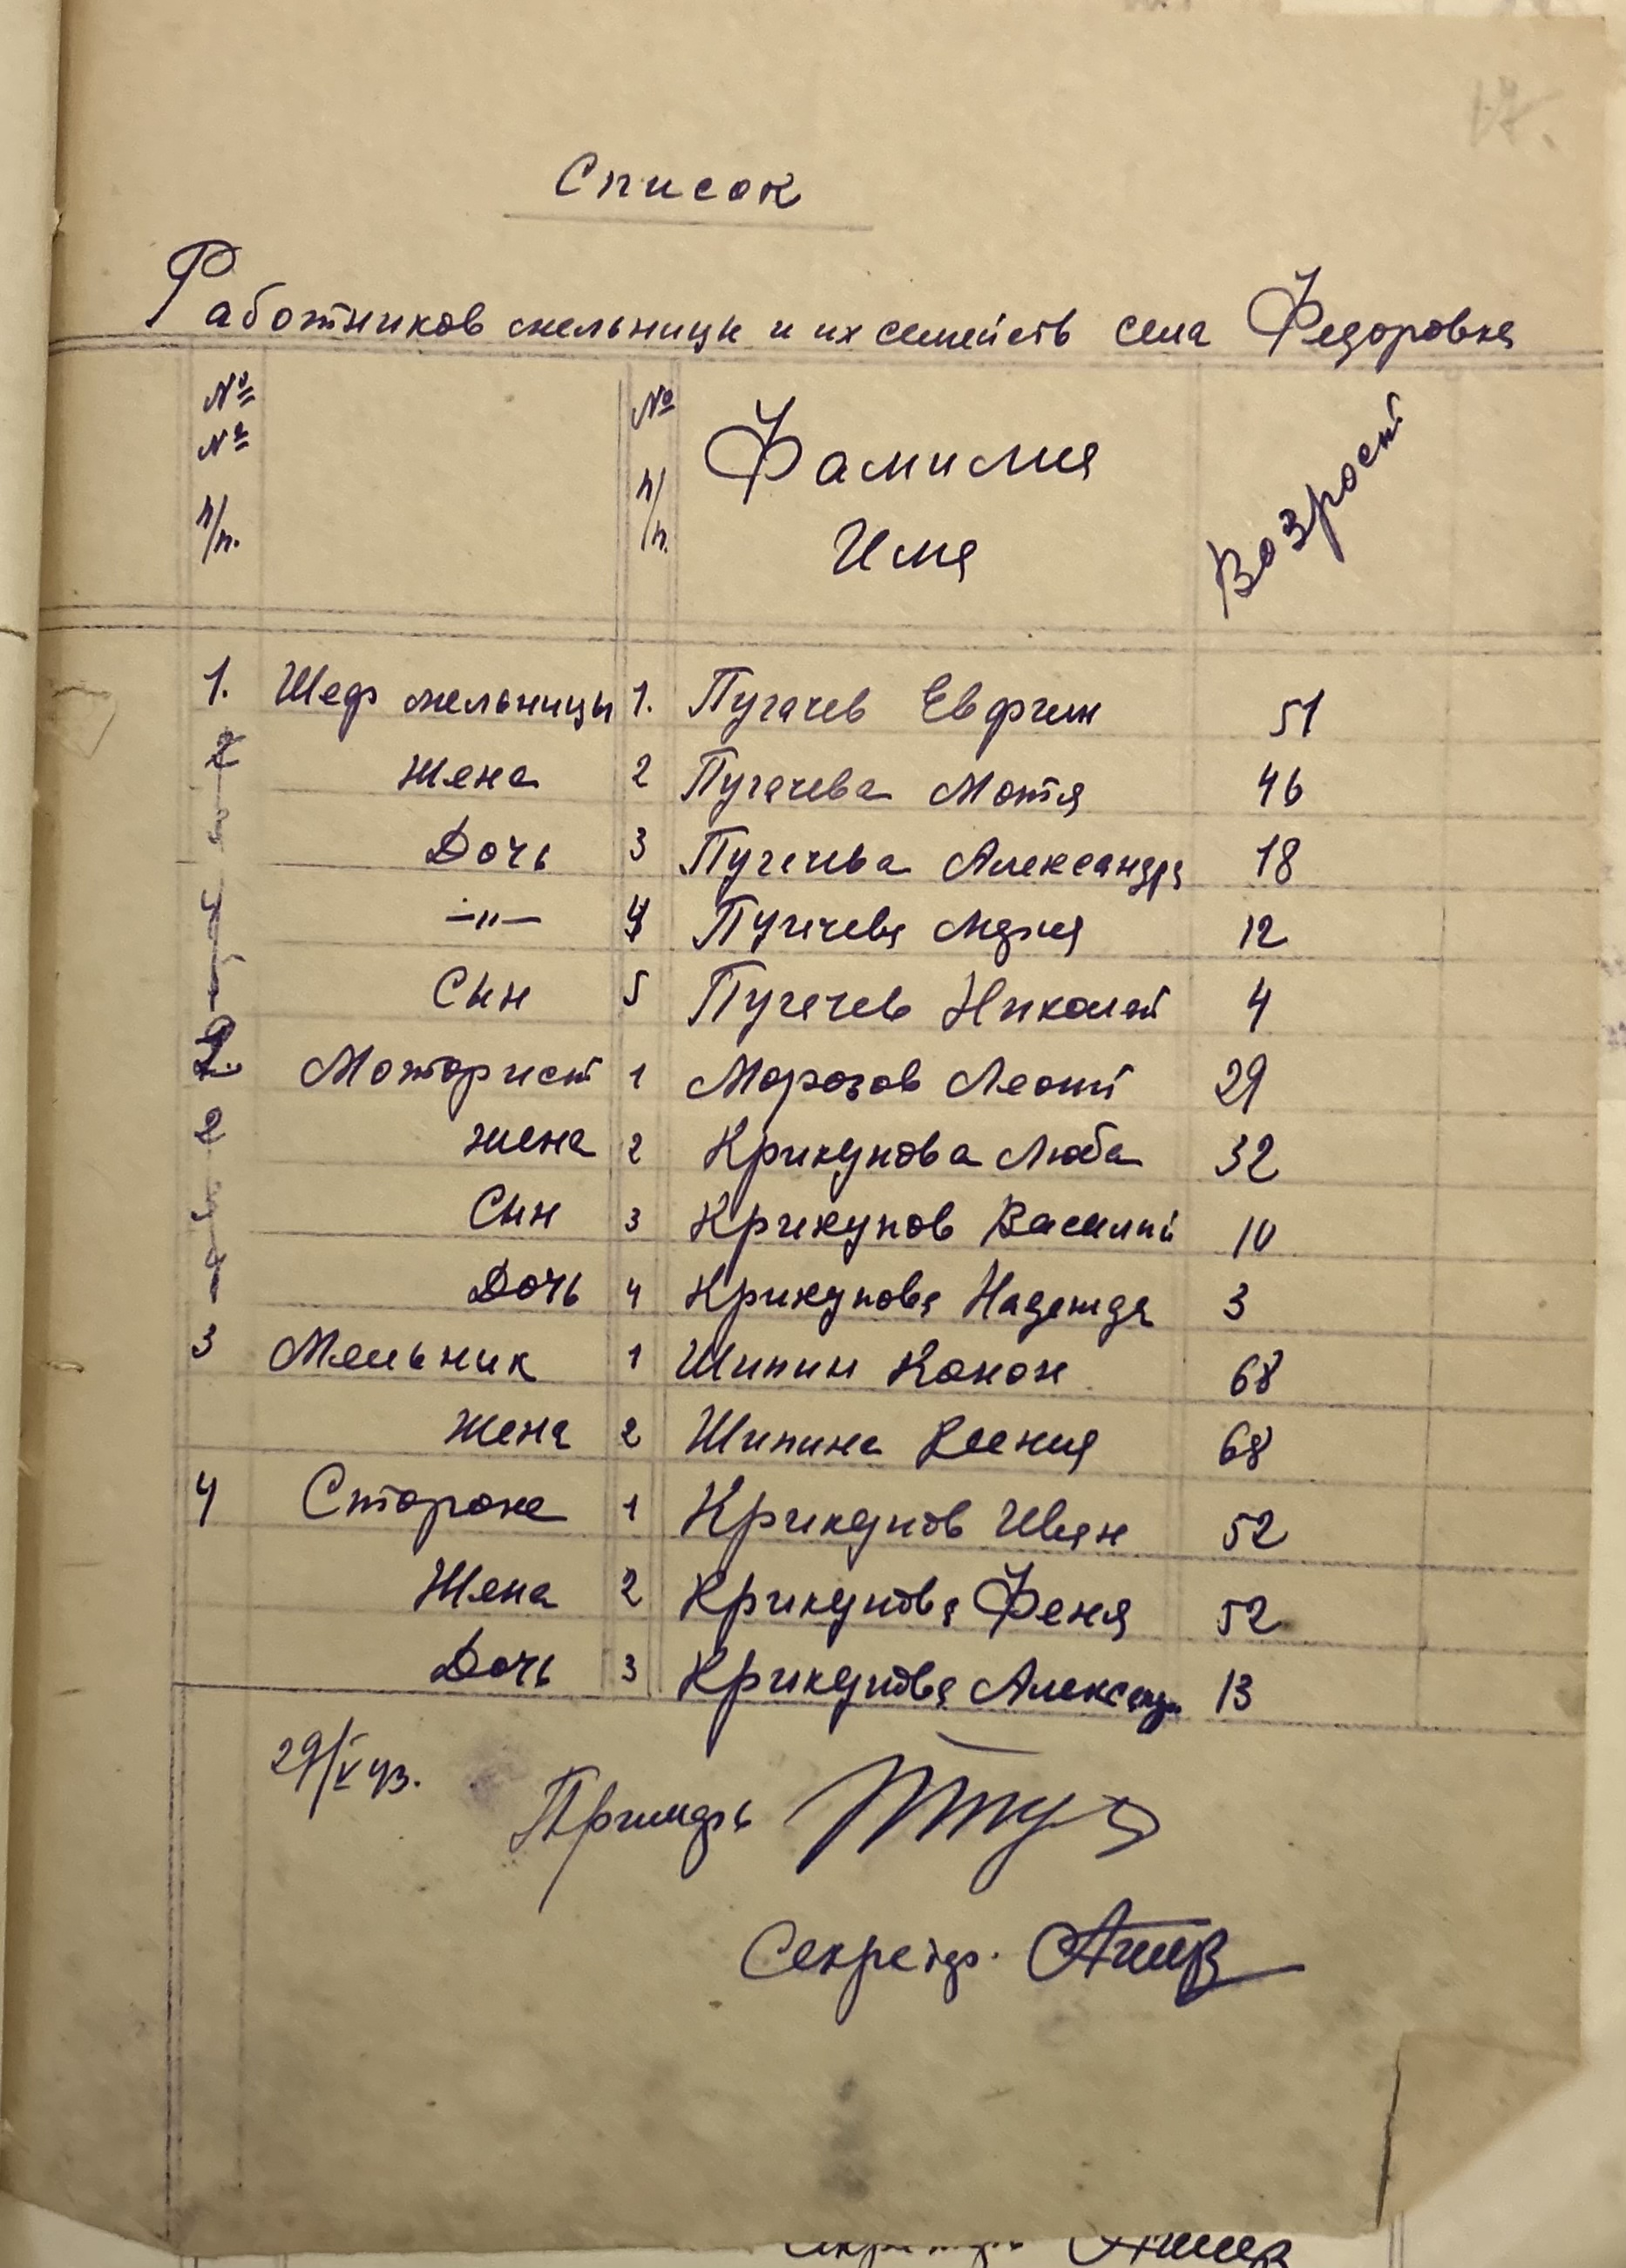 17.
Список
Работников мельницы и их семейств села Федоровка
№ № п/п. № п/п. Фамилия Имя Возрост
1. Шеф мельницы 1. Пугачев Евфим 51
2 Жена 2 Пугачева Мотя 46
Дочь 3 Пугачева Александра 18
4 —"— 4 Пугачева Лидия 12
Сын 5 Пугачев Николай 4
2. Моторист 1 Морозов Леонт 29
2 жена 2 Крикунова Люба 32
3 Сын 3 Крикунов Василий 10
4 Дочь 4 Крикунова Надежда 3
3 Мельник 1 Шипин Конон 68
жена 2 Шипина Ксения 68
4 Сторожа 1 Крикунов Иван 52
Жена 2 Крикунова Феня 52
Дочь 3 Крикунова Александр 13
29/V 43.
Секретар.